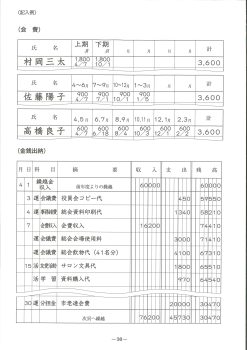 〈記入例〉
〈会 費〉
氏 名 上期 下期 月 月 月 月 計
村岡三太 1,800 1,800 3,600
4/7 10/1
氏 名 4~6月 7~9月 10~12月 1~3月 月 月 計
佐藤陽子 900 900 900 900 3,600
4/7 7/1 10/1 1/5
氏 名 4,5月 6,7月 8,9月 10,11月 12,1月 2,3月 計
高橋良子 600 600 600 600 600 600 3,600
4/7 6/18 8/4 10/3 12/2
〈金銭出納〉
月 日 科 目 摘 要 収 入 支 出 残 高
4 1 繰越金収入 前年度よりの繰越 60000 60000
3 運 会議費 役員会コピー代 450 59550
4 運 事務諸費 総会資料印刷代 1340 58210
7 会費収入 会費収入 16200 74410
運 会議費 総会会場使用料 3000 71410
運 会議費 総会飲物代(41名分) 4100 67310
15 活 サロン文具代 1800 65510
活 学 習 資料購入代 640 64540
30 運 分担金 市老連会費 20000 30470
次頁へ繰越 76200 45730 30470
-38-